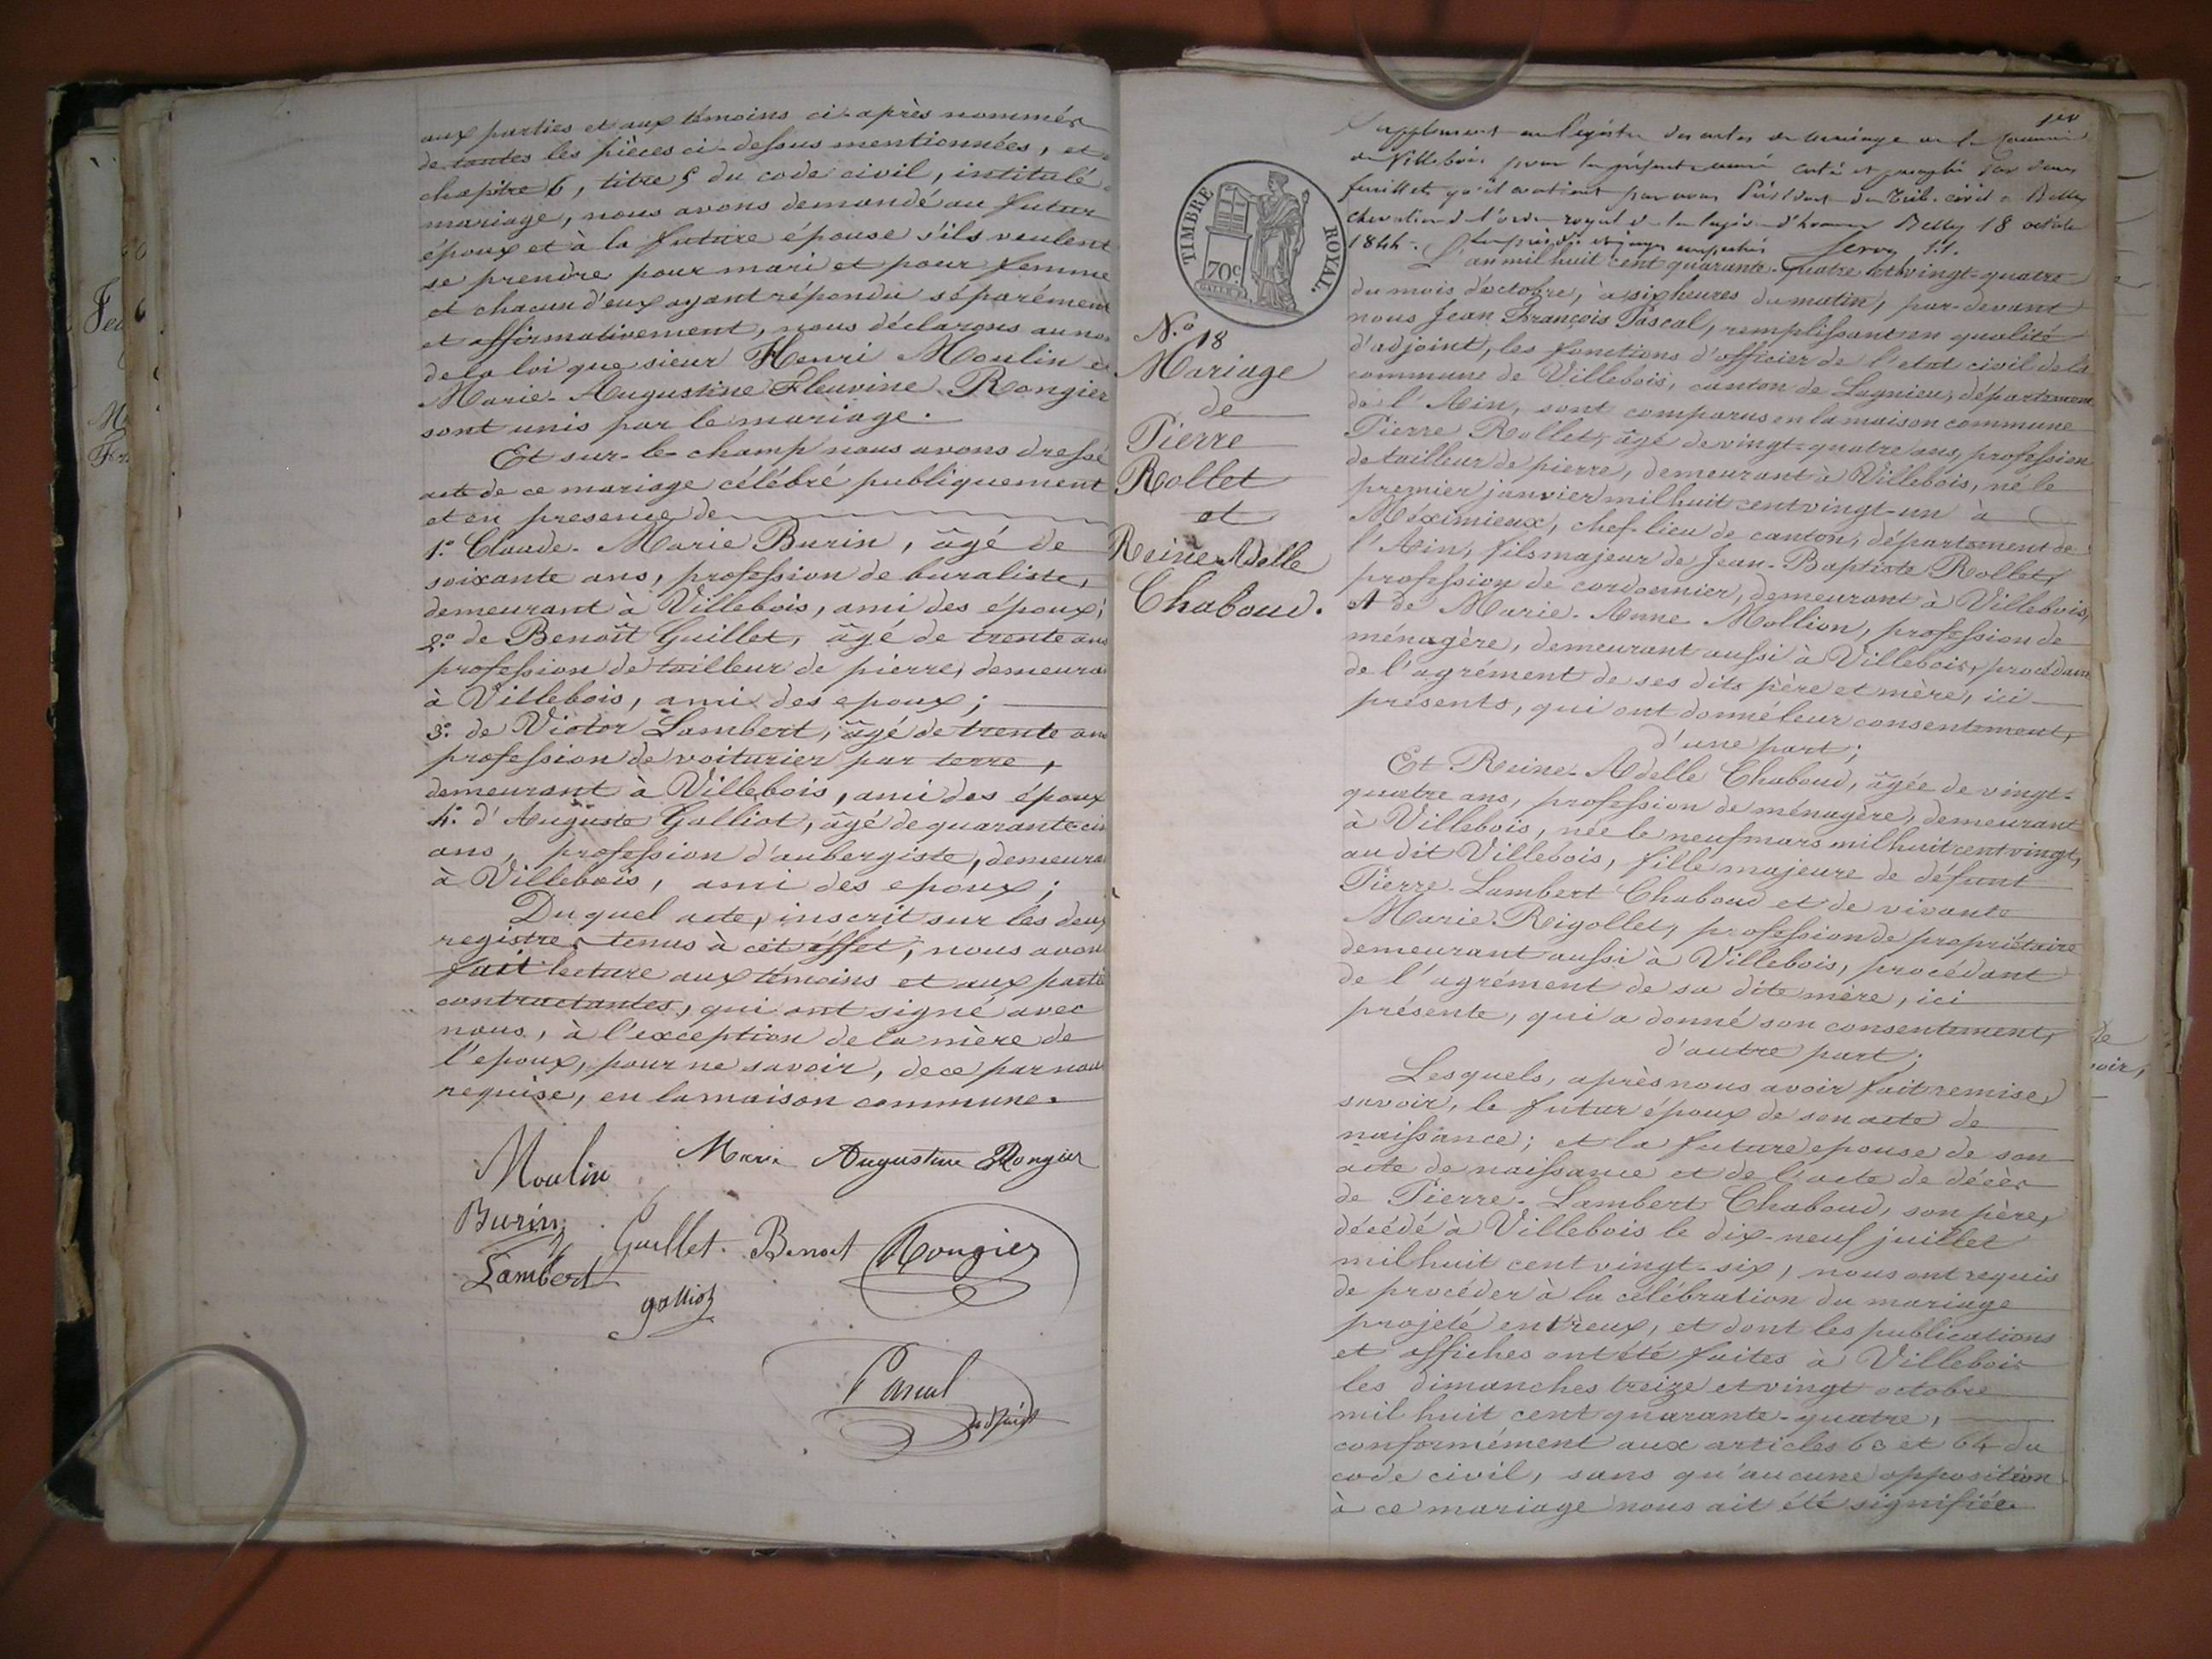 aux parties et aux témoins ci-après nommés
de toutes les pièces ci-dessus mentionnées, et
chapitre 6, titre 5 du code civil, intitulé
mariage, nous avons demandé au futur
époux et à la future épouse s'ils veulent
se prendre pour mari et pour femme
et chacun d'eux ayant répondu séparément
et affirmativement, nous déclarons au no
de la loi que sieur Henri Moulin et
Marie-Augustine Fleurine Rongier
sont unis par le mariage.
Et sur-le-champ nous avons dressé
acte de ce mariage célébré publiquement
et en presence de
1º Claude-Marie Burin, âgé de
soixante ans, profession de buraliste,
demeurant à Villebois, ami des époux;
2º de Benoît Guillet, âgé de trente ans
profession de tailleur de pierre, demeura
à Villebois, ami des epoux;
3º de Victor Lambert, âgé de trente ans
profession de voiturier par terre,
demeurant à Villebois, ami des époux
4º d'Auguste Galliot, âgé de quarante cin
ans, profession d'aubergiste, demeura
à Villebois, ami des epoux;
Du quel acte, inscrit sur les deux
registres tenus à cet éffet, nous avons
fait lecture aux témoins et aux parti
contractantes, qui ont signé avec
nous, à l'exception de la mère de
l'epoux, pour ne savoir, de ce par nous
requise, en la maison commune.
Moulin Marie Augustine Rongier
Burin
Guillet Benoit Rongier
Lambert
galliot
Pascal
adjoint
1er
Supplément au registre des actes de mariage de la Commune
de Villebois pour la présente année coté et paraphé par deux
feuillets qu'il contient par nous Président du Trib. civil de Belley
chevalier de l'ordre royal de la légion d'honneur Belley 18 octobre
1844.
TIMBRE ROYAL.
70c
L'an mil huit cent quarante-quatre et le vingt-quatre
du mois d'octobre, à six heures du matin, par-devant
nous Jean François Pascal, remplissant en qualité
d'adjoint, les fonctions d'officier de l'etat civil de la
commune de Villebois, canton de Lagnieu, département
de l'Ain, sont comparus en la maison commune
N.º 18
Mariage
de
Pierre
Rollet
et
Reine Adelle
Chaboud.
Pierre Rollet, âgé de vingt-quatre ans, profession
de tailleur de pierre, demeurant à Villebois, né le
premier janvier mil huit cent vingt-un à
Méximieux, chef-lieu de canton, département de
l'Ain, fils majeur de Jean-Baptiste Rollet,
profession de cordonnier, demeurant à Villebois,
et de Marie-Anne Mollion, profession de
ménagère, demeurant aussi à Villebois, procédant
de l'agrément de ses dits père et mère, ici
présents, qui ont donné leur consentement,
d'une part;
Et Reine-Adelle Chaboud, âgée de vingt-
quatre ans, profession de ménagère, demeurant
à Villebois, née le neuf mars mil huit cent vingt,
au dit Villebois, fille majeure de défunt
Pierre-Lambert Chaboud et de vivante
Marie Rigollet, profession de propriétaire
demeurant aussi à Villebois, procédant
de l'agrément de sa dite mère, ici
présente, qui a donné son consentement,
d'autre part;
Lesquels, après nous avoir fait remise,
savoir, le futur époux de son acte de
naissance; et la future epouse de son
acte de naissance et de l'acte de décès
de Pierre-Lambert Chaboud, son père,
décédé à Villebois le dix-neuf juillet
mil huit cent vingt-six, nous ont requis
de procéder à la célébration du mariage
projeté entr'eux, et dont les publications
et affiches ont été faites à Villebois
les dimanches treize et vingt octobre
mil huit cent quarante-quatre,
conformément aux articles 63 et 64 du
code civil, sans qu'aucune opposition
à ce mariage nous ait été signifiée